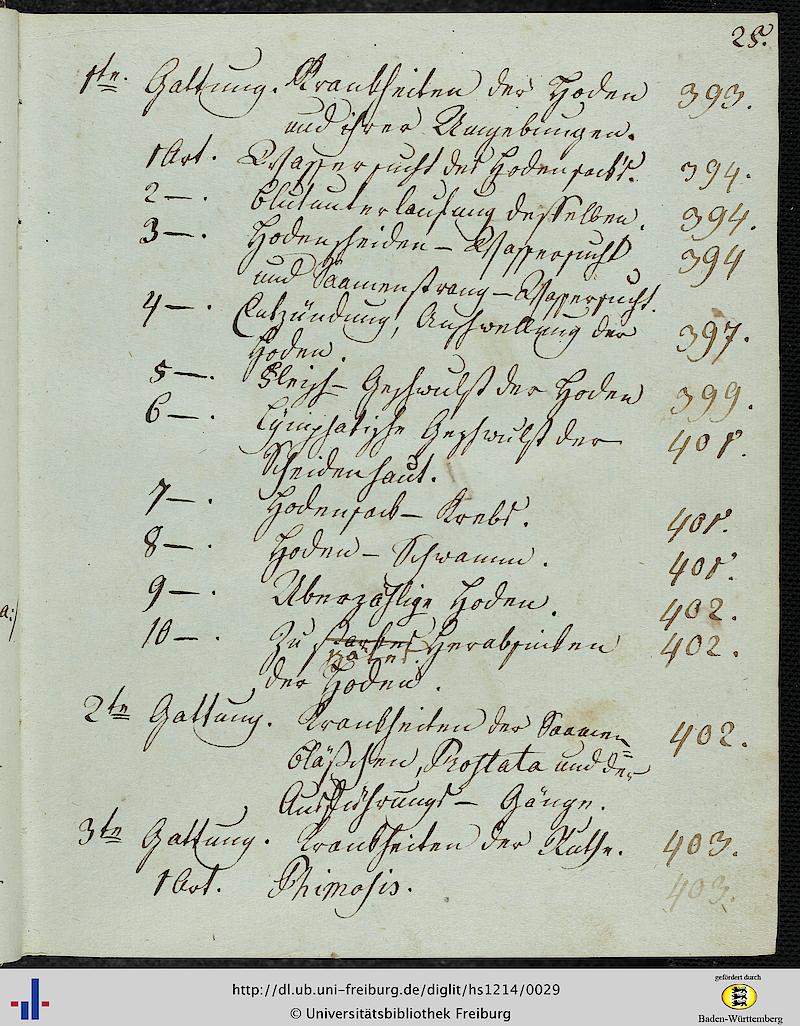 25.
1te. Gattung. Krankheiten der Hoden 393.
und ihrer Umgebungen.
1 Art. Wassersucht des Hodensack's. 394.
2 — . Blutunterlaufung desselben. 394.
3 — . Hodenscheiden – Wassersucht 394
und Saamenstrang – Wassersucht.
4 — . Entzündung, Anschwellung der 397.
Hoden.
5 — . Fleisch – Geschwulst der Hoden 399.
6 — . Lÿmphatische Geschwulst der 401.
Scheidenhaut.
7 — . Hodensack – Krebs. 401.
8 — . Hoden – Schwamm. 401.
9 — . Überzählige Hoden. 402.
10 — . Zu starkes Herabsinken 402.
der Hoden.
2te Gattung. Krankheiten der Saamen= 402.
bläschen, Prostata und der
Ausführungs – Gänge.
3te Gattung. Krankheiten der Ruthe. 403.
1 Art. Phimosis. 403.
a:/
http://dl.ub.uni-freiburg.de/diglit/hs1214/0029
© Universitätsbibliothek Freiburg
gefördert durch
Baden-Württemberg